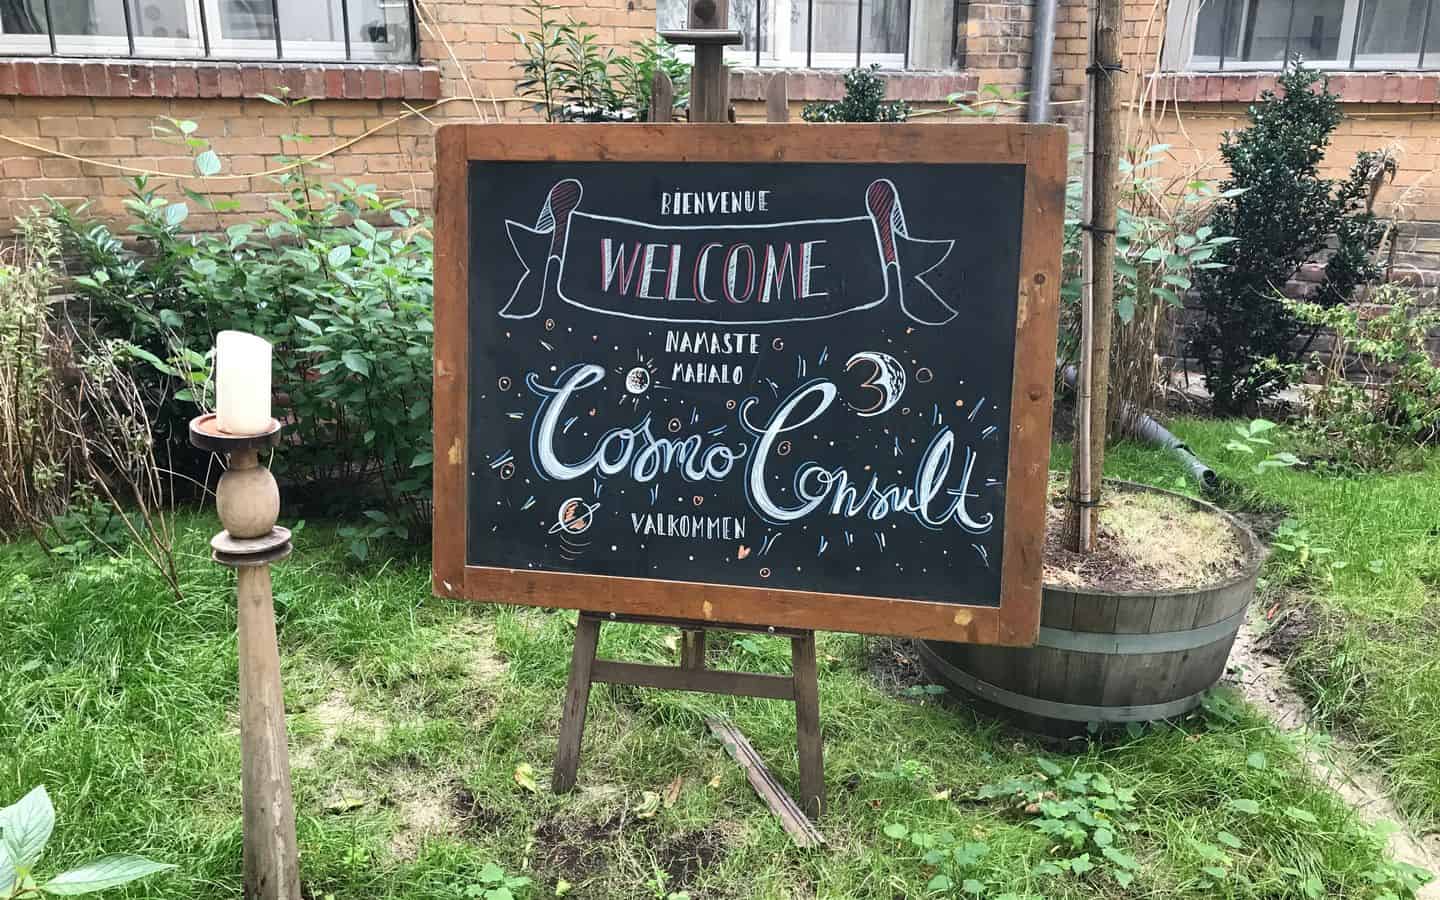 BIENVENUE
WELCOME
NAMASTE
MAHALO
Cosmo Consult
VALKOMMEN